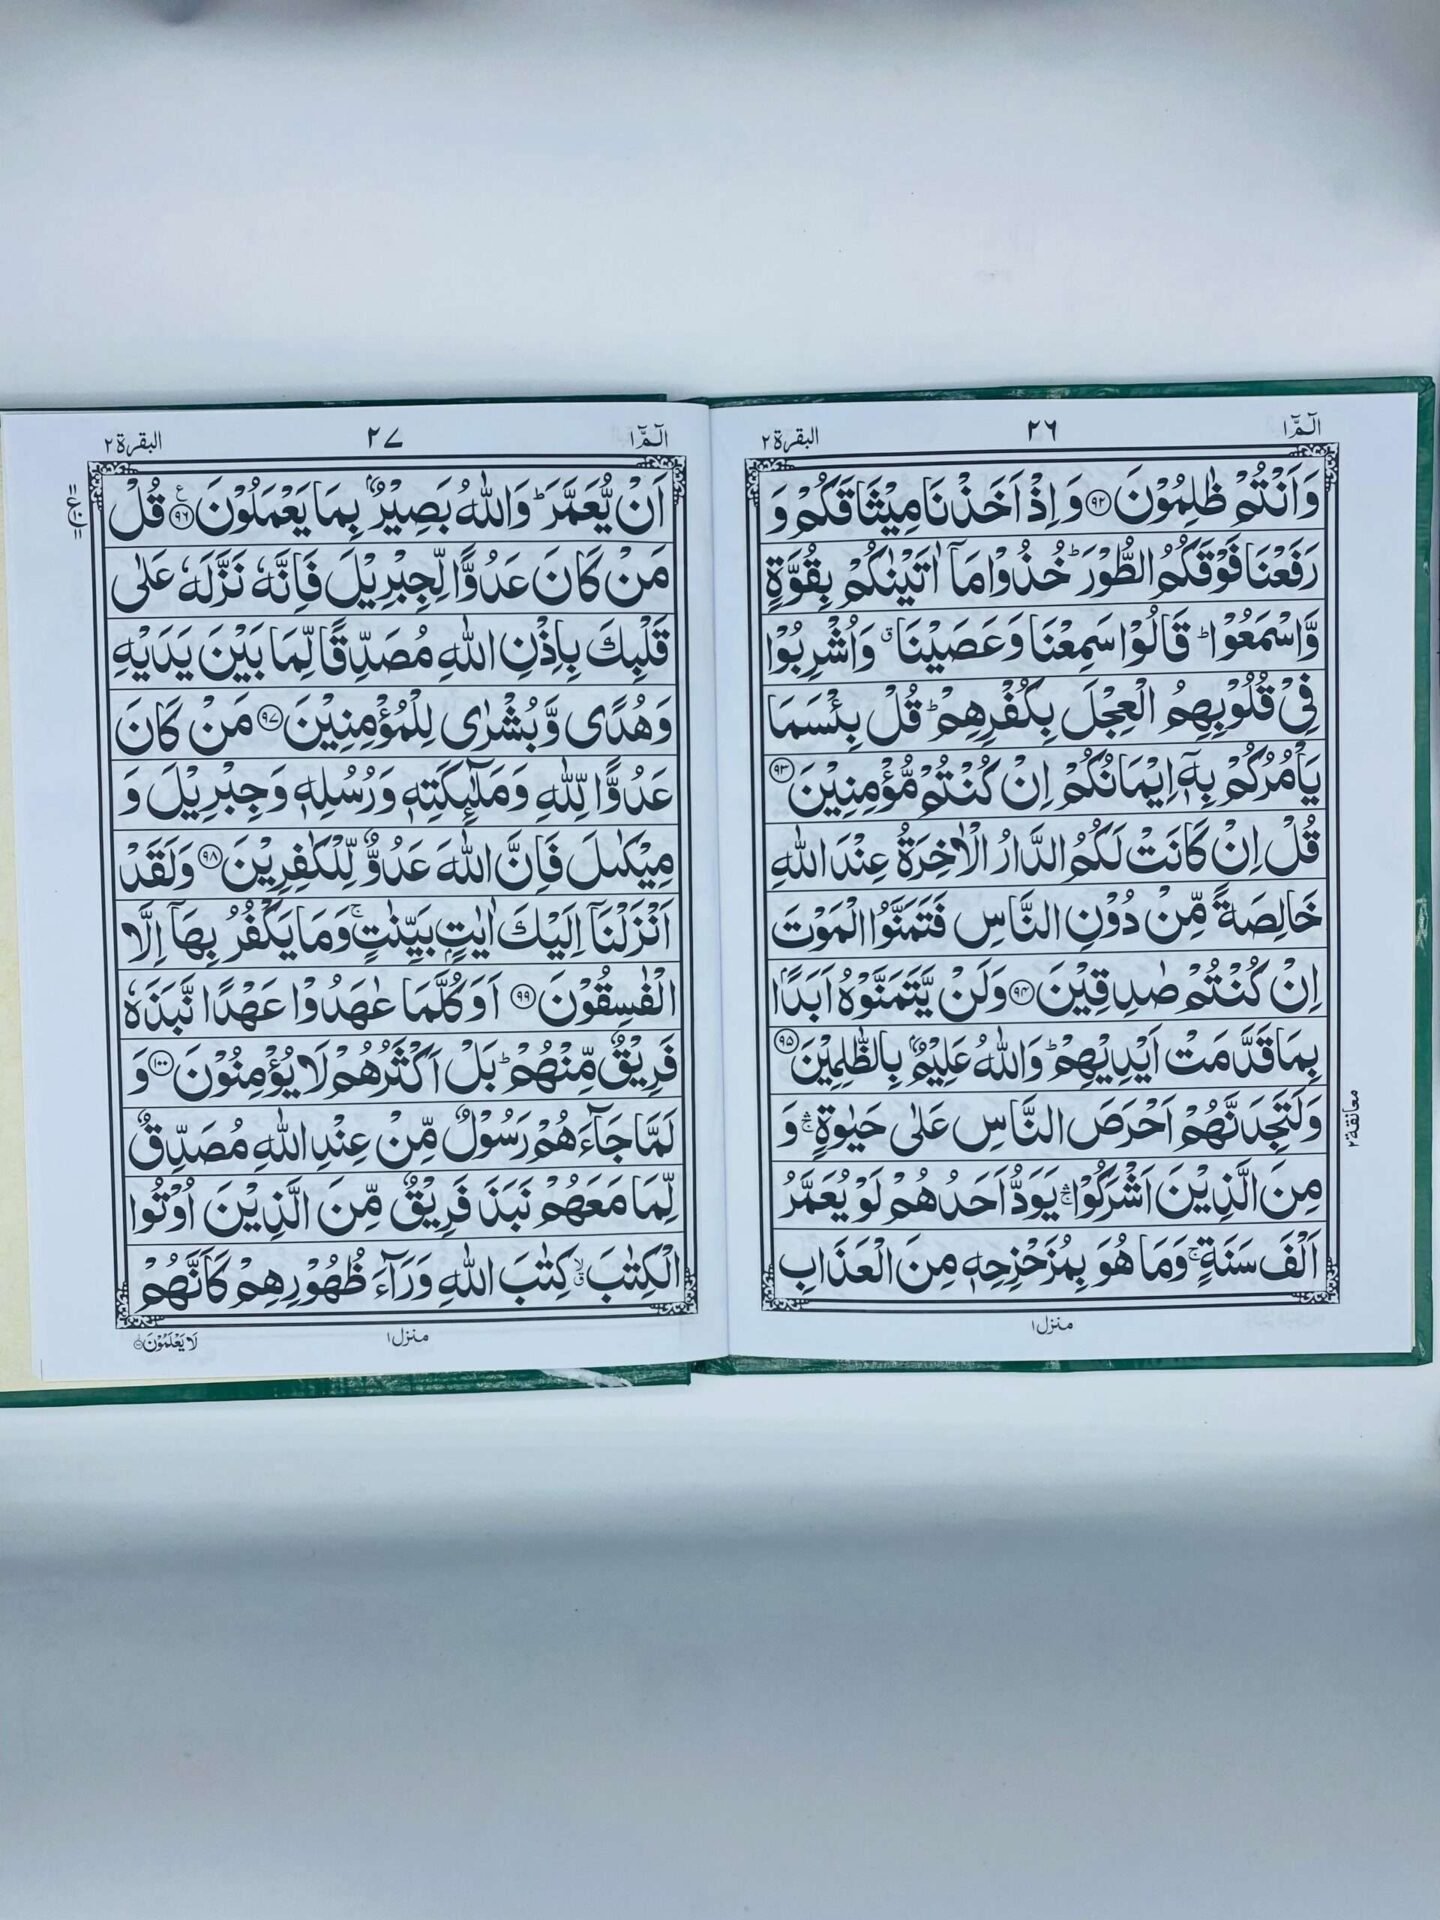 الٓمّٓ ۱
۲۶
البقرة ۲
وَاَنْتُمْ ظٰلِمُوْنَ ﴿۹۲﴾ وَاِذْ اَخَذْنَا مِيْثَاقَكُمْ وَ
رَفَعْنَا فَوْقَكُمُ الطُّوْرَ ؕ خُذُوْا مَاۤ اٰتَيْنٰكُمْ بِقُوَّةٍ
وَّاسْمَعُوْا ؕ قَالُوْا سَمِعْنَا وَعَصَيْنَا ۛق وَاُشْرِبُوْا
فِيْ قُلُوْبِهِمُ الْعِجْلَ بِكُفْرِهِمْ ؕ قُلْ بِئْسَمَا
يَاْمُرُكُمْ بِهٖۤ اِيْمَانُكُمْ اِنْ كُنْتُمْ مُّؤْمِنِيْنَ ﴿۹۳﴾
قُلْ اِنْ كَانَتْ لَكُمُ الدَّارُ الْاٰخِرَةُ عِنْدَ اللّٰهِ
خَالِصَةً مِّنْ دُوْنِ النَّاسِ فَتَمَنَّوُا الْمَوْتَ
اِنْ كُنْتُمْ صٰدِقِيْنَ ﴿۹۴﴾ وَلَنْ يَّتَمَنَّوْهُ اَبَدًۢا
بِمَا قَدَّمَتْ اَيْدِيْهِمْ ؕ وَاللّٰهُ عَلِيْمٌۢ بِالظّٰلِمِيْنَ ﴿۹۵﴾
وَلَتَجِدَنَّهُمْ اَحْرَصَ النَّاسِ عَلٰى حَيٰوةٍ ۛۚ وَ
مِنَ الَّذِيْنَ اَشْرَكُوْا ۛۚ يَوَدُّ اَحَدُهُمْ لَوْ يُعَمَّرُ
اَلْفَ سَنَةٍ ۚ وَمَا هُوَ بِمُزَحْزِحِهٖ مِنَ الْعَذَابِ
معانقة ۲
منزل ۱
الٓمّٓ ۱
۲۷
البقرة ۲
اَنْ يُّعَمَّرَ ؕ وَاللّٰهُ بَصِيْرٌۢ بِمَا يَعْمَلُوْنَ ﴿۹۶﴾ع قُلْ
مَنْ كَانَ عَدُوًّا لِّجِبْرِيْلَ فَاِنَّهٗ نَزَّلَهٗ عَلٰى
قَلْبِكَ بِاِذْنِ اللّٰهِ مُصَدِّقًا لِّمَا بَيْنَ يَدَيْهِ
وَهُدًى وَّبُشْرٰى لِلْمُؤْمِنِيْنَ ﴿۹۷﴾ مَنْ كَانَ
عَدُوًّا لِّلّٰهِ وَمَلٰٓئِكَتِهٖ وَرُسُلِهٖ وَجِبْرِيْلَ وَ
مِيْكٰىلَ فَاِنَّ اللّٰهَ عَدُوٌّ لِّلْكٰفِرِيْنَ ﴿۹۸﴾ وَلَقَدْ
اَنْزَلْنَاۤ اِلَيْكَ اٰيٰتٍۭ بَيِّنٰتٍ ۚ وَمَا يَكْفُرُ بِهَاۤ اِلَّا
الْفٰسِقُوْنَ ﴿۹۹﴾ اَوَكُلَّمَا عٰهَدُوْا عَهْدًا نَّبَذَهٗ
فَرِيْقٌ مِّنْهُمْ ؕ بَلْ اَكْثَرُهُمْ لَا يُؤْمِنُوْنَ ﴿۱۰۰﴾ وَ
لَمَّا جَآءَهُمْ رَسُوْلٌ مِّنْ عِنْدِ اللّٰهِ مُصَدِّقٌ
لِّمَا مَعَهُمْ نَبَذَ فَرِيْقٌ مِّنَ الَّذِيْنَ اُوْتُوا
الْكِتٰبَ ۙق كِتٰبَ اللّٰهِ وَرَآءَ ظُهُوْرِهِمْ كَاَنَّهُمْ
منزل ۱
لَا يَعْلَمُوْنَ